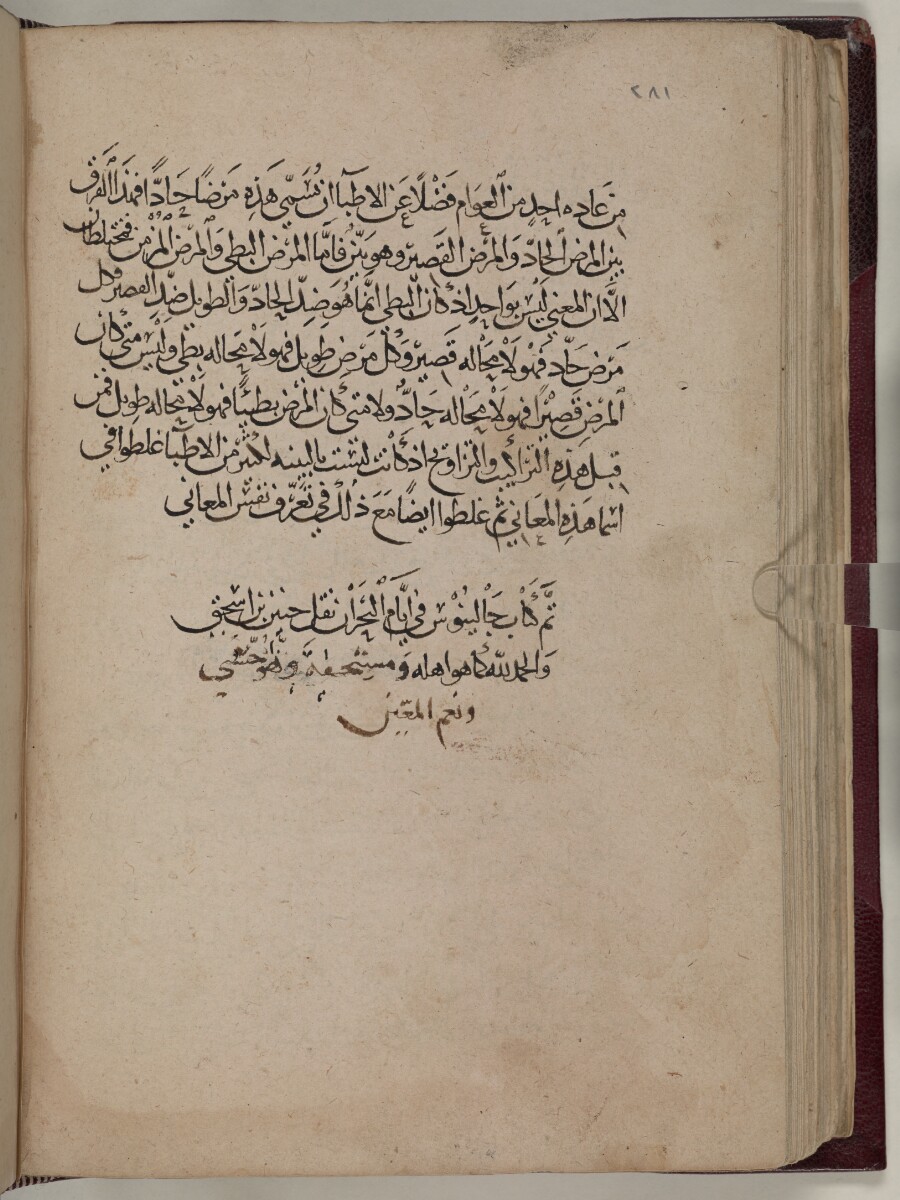 ٢٨١
من عاده احد من العوام فَضْلًا عَن الاطبآ ان يُسَمِّي هَذِه مَرَضًا حَادًّا فهذا الفرق
بين المرض الحادّ وَالمرَض القَصير وهو بَيّن فامّا المرَض البطي وَالمرَض المزْمن فمختلطان
الّا ان المعني لَيْس بوَاحِد اذ كان البطي انّما هُوَ ضِدّ الحادّ وَالطويل ضِدّ القصير وكل
مَرَض حَادّ فهْو لَا مْحَاله قَصير وَكل مَرَض طَويل فهو لَا محاله بطي وليْس متي كان
المرَض قَصِيْرًا فهو لَا مَحْاله حَادٌّ ولا متي كان المرَض بَطيئًا فهو لَا محَاله طويل فمن
قبل هذِه التراكيب والتزاويج اذ كانت ليْست بالبينه لكثير من الاطبآ غلطوا في
اسما هَذِه المعَاني ثم غلطوا ايضًا مَعَ ذلكَ في تَعَرّف نفْس المعاني
تَمَّ كتَاب جَاْلينُوْس في ايَّام البُحرَان نقل حنين بن اسحق
وَالحمد للّه كمَا هو اهله وَمستحقه وهُو حسْبي
ونعم المعين